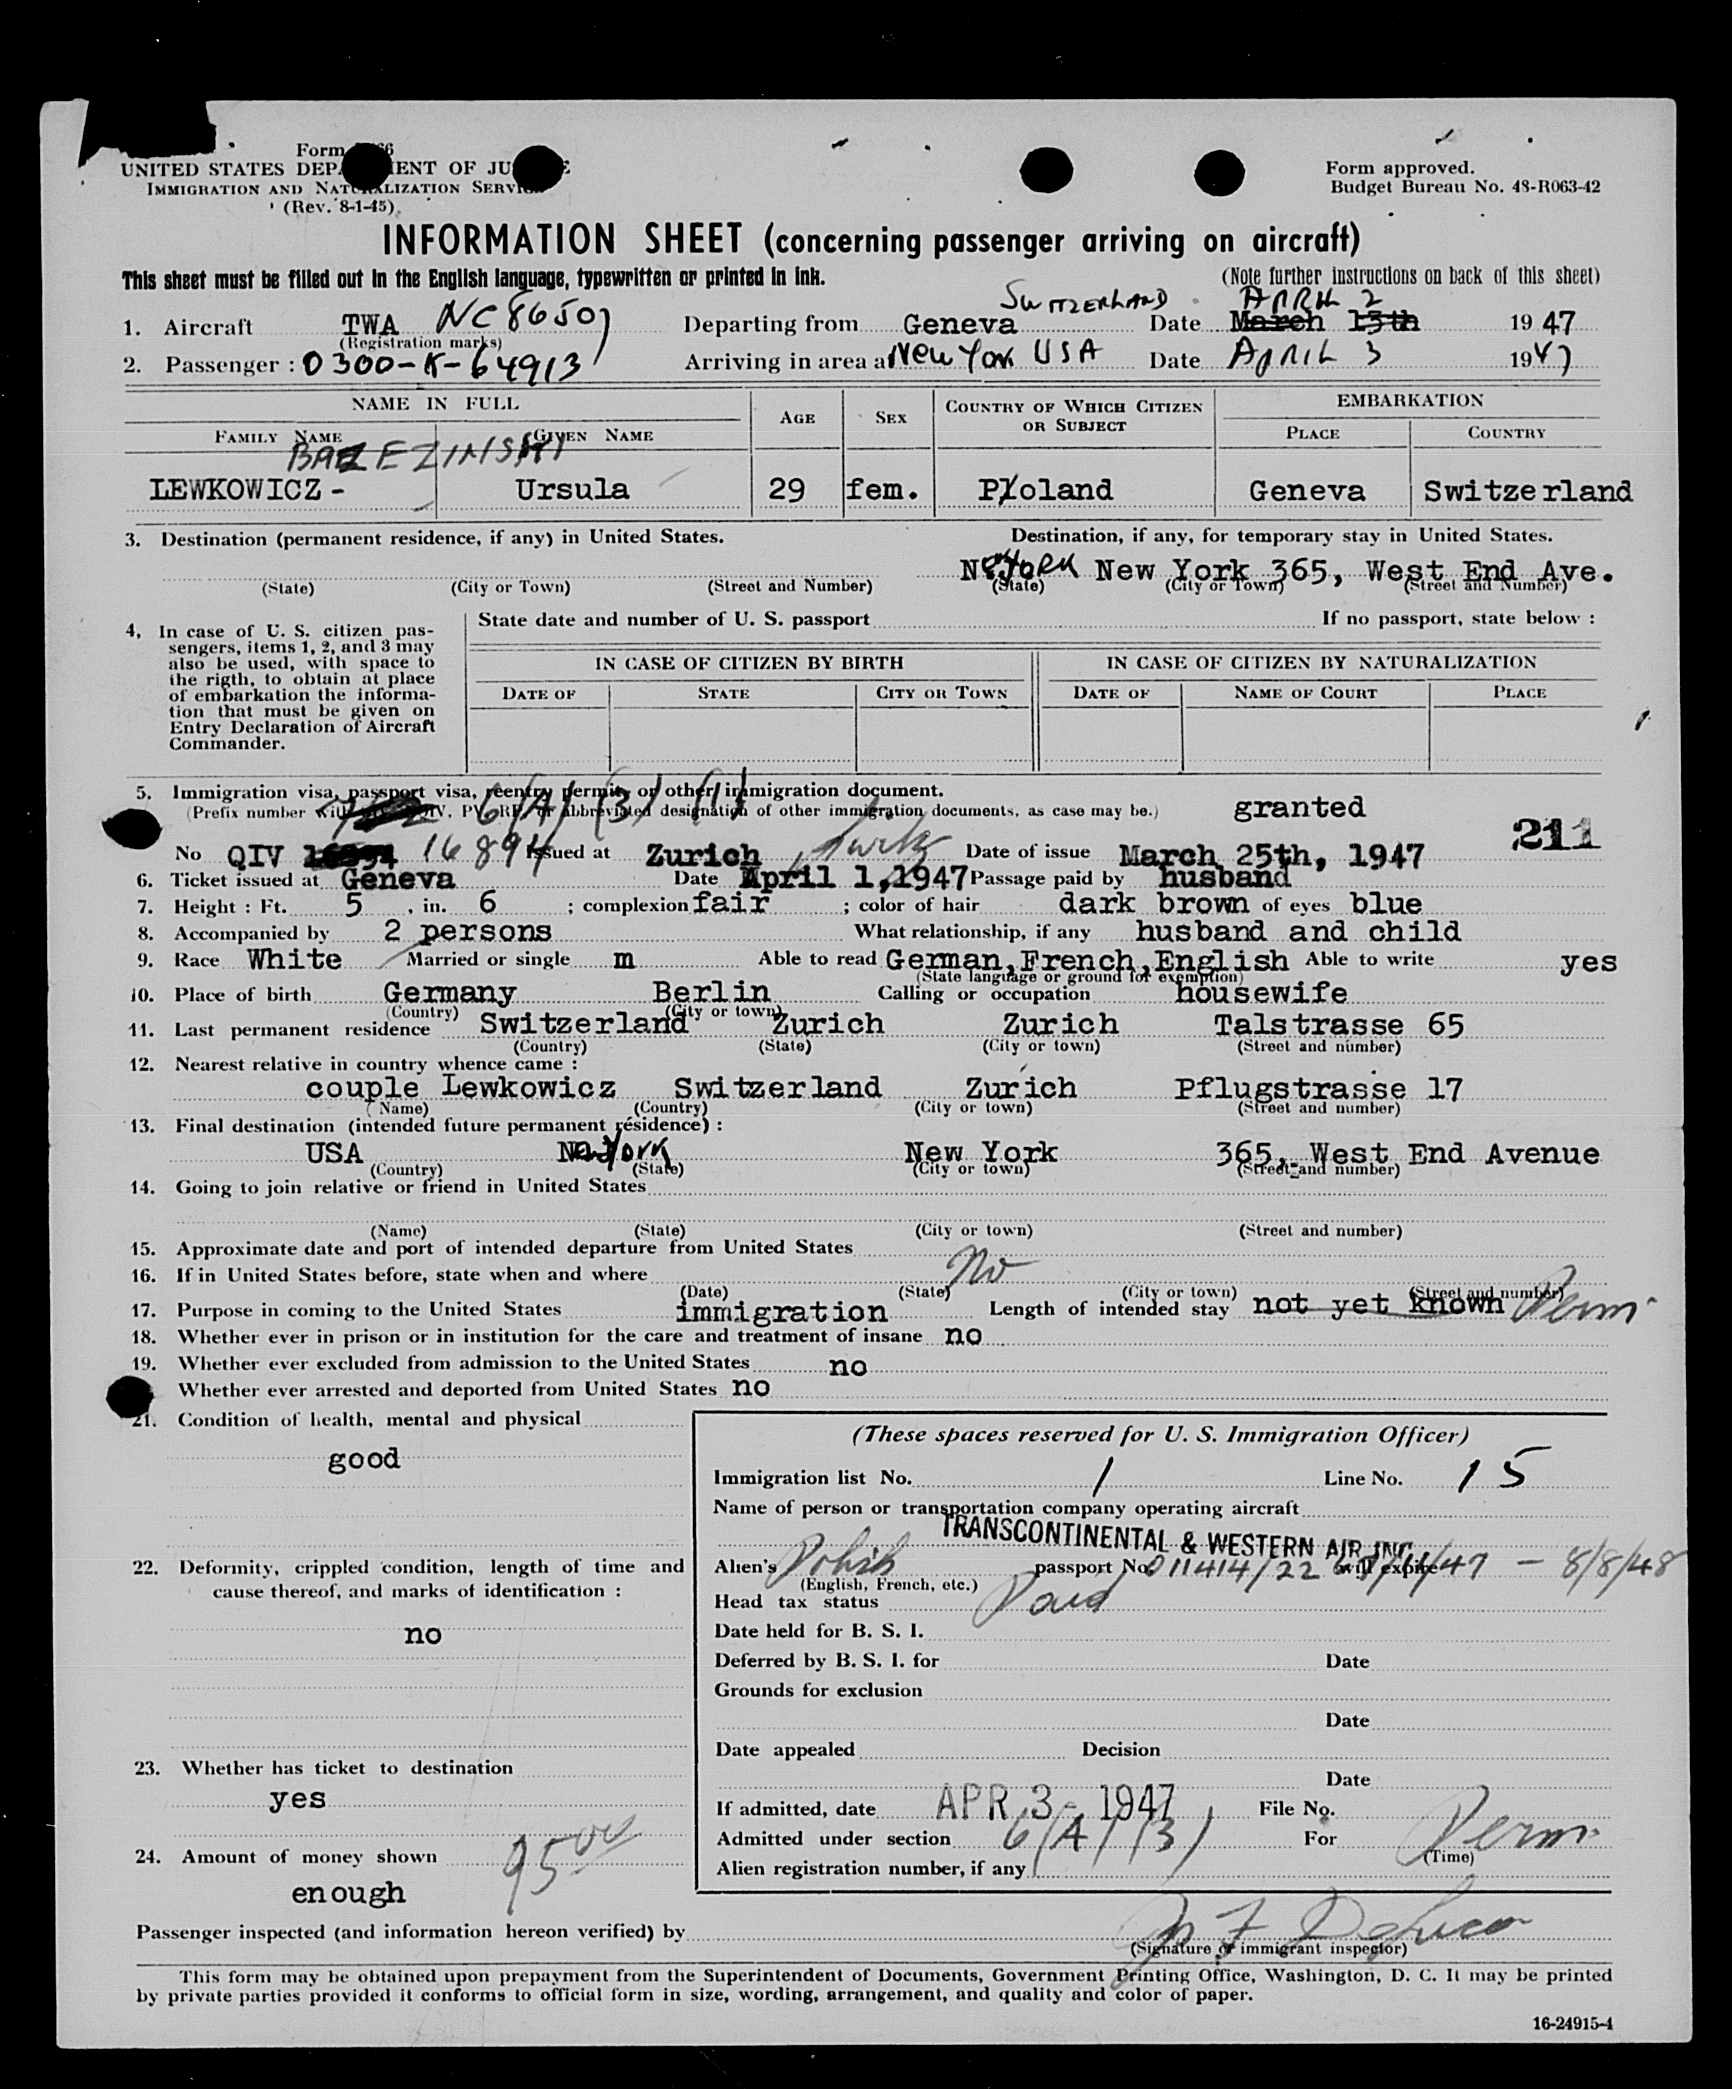 Form
UNITED STATES DEPARTMENT OF JUSTICE
IMMIGRATION AND NATURALIZATION SERVICE
(Rev. 8-1-45)
Form approved.
Budget Bureau No. 43-R063-42
INFORMATION SHEET (concerning passenger arriving on aircraft)
This sheet must be filled out in the English language, typewritten or printed in ink.
(Note further instructions on back of this sheet)
SWITZERLAND APRIL 2
1. Aircraft TWA NC 86507 Departing from Geneva Date March 13th 1947
(Registration marks)
2. Passenger : 0300-K-64913 Arriving in area at New York USA Date April 3 1947
NAME IN FULL AGE SEX COUNTRY OF WHICH CITIZEN OR SUBJECT EMBARKATION
FAMILY NAME GIVEN NAME PLACE COUNTRY
LEWKOWICZ - Ursula 29 fem. Poland Geneva Switzerland
3. Destination (permanent residence, if any) in United States. Destination, if any, for temporary stay in United States.
N. York New York 365, West End Ave.
(State) (City or Town) (Street and Number) (State) (City or Town) (Street and Number)
4, In case of U. S. citizen pas-
sengers, items 1, 2, and 3 may
also be used, with space to
the rigth, to obtain at place
of embarkation the informa-
tion that must be given on
Entry Declaration of Aircraft
Commander.
State date and number of U. S. passport If no passport, state below :
IN CASE OF CITIZEN BY BIRTH IN CASE OF CITIZEN BY NATURALIZATION
DATE OF STATE CITY OR TOWN DATE OF NAME OF COURT PLACE
5. Immigration visa, passport visa, reentry permit, or other immigration document.
6(A)(3) (1)
(Prefix number with QIV, PV, RP, or abbreviated designation of other immigration documents, as case may be.) granted
211
No QIV 16894 Issued at Zurich Switz Date of issue March 25th, 1947
6. Ticket issued at Geneva Date April 1, 1947 Passage paid by husband
7. Height : Ft. 5 , in. 6 ; complexion fair ; color of hair dark brown of eyes blue
8. Accompanied by 2 persons What relationship, if any husband and child
9. Race White Married or single m Able to read German, French, English Able to write yes
(State language or ground for exemption)
10. Place of birth Germany Berlin Calling or occupation housewife
(Country) (City or town)
11. Last permanent residence Switzerland Zurich Zurich Talstrasse 65
(Country) (State) (City or town) (Street and number)
12. Nearest relative in country whence came :
couple Lewkowicz Switzerland Zurich Pflugstrasse 17
(Name) (Country) (City or town) (Street and number)
13. Final destination (intended future permanent residence) :
USA N. York New York 365, West End Avenue
(Country) (State) (City or town) (Street and number)
14. Going to join relative or friend in United States
(Name) (State) (City or town) (Street and number)
15. Approximate date and port of intended departure from United States
16. If in United States before, state when and where No
(Date) (State) (City or town) (Street and number)
17. Purpose in coming to the United States immigration Length of intended stay not yet known Perm.
18. Whether ever in prison or in institution for the care and treatment of insane no
19. Whether ever excluded from admission to the United States no
Whether ever arrested and deported from United States no
21. Condition of health, mental and physical
good
22. Deformity, crippled condition, length of time and
cause thereof, and marks of identification :
no
23. Whether has ticket to destination
yes
24. Amount of money shown 95 00
enough
(These spaces reserved for U. S. Immigration Officer)
Immigration list No. 1 Line No. 15
Name of person or transportation company operating aircraft
TRANSCONTINENTAL & WESTERN AIR INC.
Alien's Polish passport No. 011414/22 will expire 8/8/48
(English, French, etc.)
Head tax status Paid
Date held for B. S. I.
Deferred by B. S. I. for Date
Grounds for exclusion
Date
Date appealed Decision
Date
If admitted, date APR 3 - 1947 File No.
Admitted under section 6(A)(3) For Perm.
(Time)
Alien registration number, if any
Passenger inspected (and information hereon verified) by
(Signature of immigrant inspector)
This form may be obtained upon prepayment from the Superintendent of Documents, Government Printing Office, Washington, D. C. It may be printed
by private parties provided it conforms to official form in size, wording, arrangement, and quality and color of paper.
16-24915-4